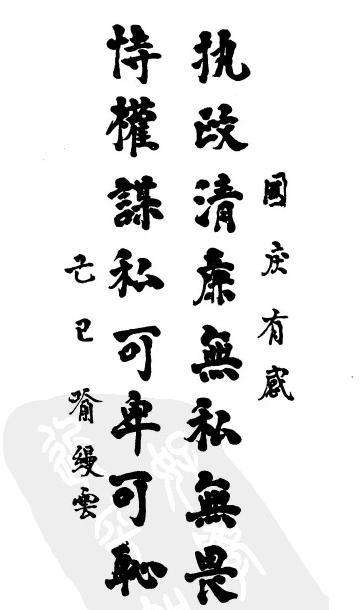 国庆有感
执政清廉無私無畏
恃權謀私可卑可恥
己巳
喻縵雲